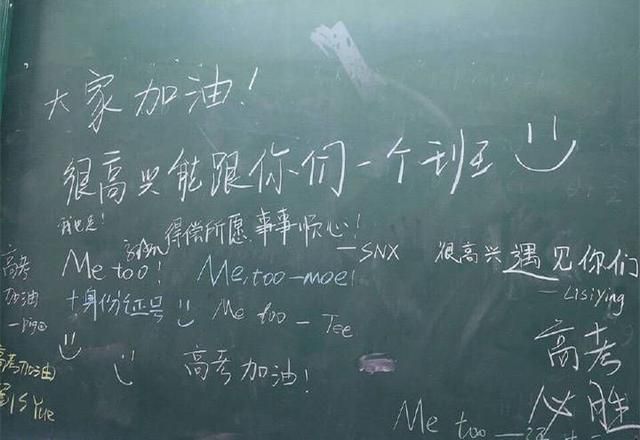 大家加油!
很高兴能跟你们一个班
我也是!
得偿所愿 事事顺心!
—SNX
很高兴遇见你们
—Lisiying
高考
加油
Me too!
Me too—moe!
+身份证号
Me too—Tee
高考加油
高考加油!
高考
必胜
Me too—